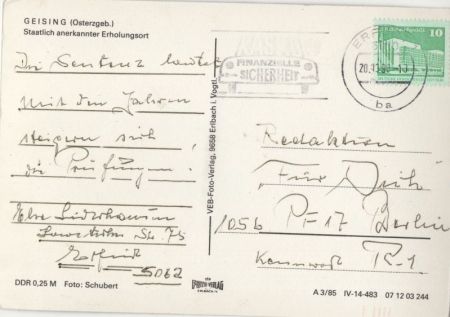 GEISING (Osterzgeb.)
Staatlich anerkannter Erholungsort
Die Sentenz lautet
Mit den Jahren
steigern sich
die Prüfungen.
Erfurt
5062
DDR 0,25 M Foto: Schubert
VEB-Foto-Verlag, 9658 Erlbach i. Vogtl.
FINANZIELLE
SICHERHEIT
ba
10
Redaktion
"Für Dich"
1056 PF 17 Berlin
Kennwort R-1
A 3/85 IV-14-483 07 12 03 244